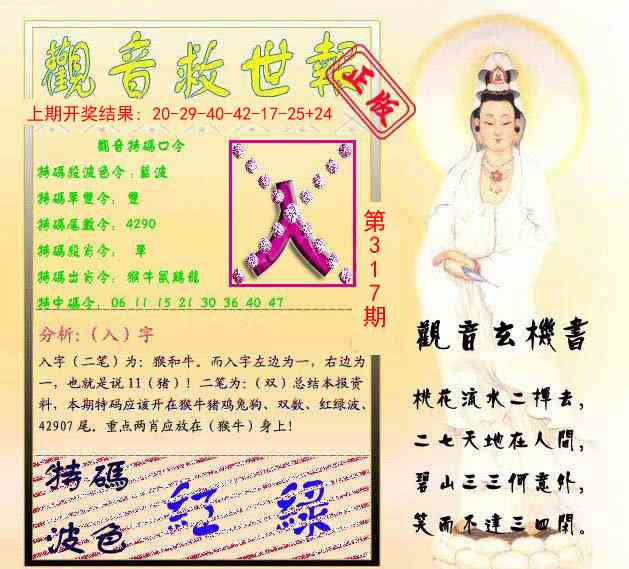 觀音救世報
正版
上期开奖结果：20-29-40-42-17-25+24
觀音特碼口令
特碼段波色令：藍波
特碼單雙令：雙
特碼尾數令：4290
特碼段肖令：單
特碼出肖令：猴牛鼠鷄龍
特中碼令：06 11 15 21 30 36 40 47
入
第317期
分析:（入）字
入字（二笔）为：猴和牛。而入字左边为一，右边为
一，也就是说11（猪）！二笔为：（双）总结本报资
料，本期特码应该开在猴牛猪鸡兔狗、双数、红绿波、
42907尾。重点两肖应放在（猴牛）身上！
特碼
波色
紅 綠
觀音玄機書
桃花流水二揮去，
二七天地在人間，
碧山三三何意外，
笑而不達三四閑。